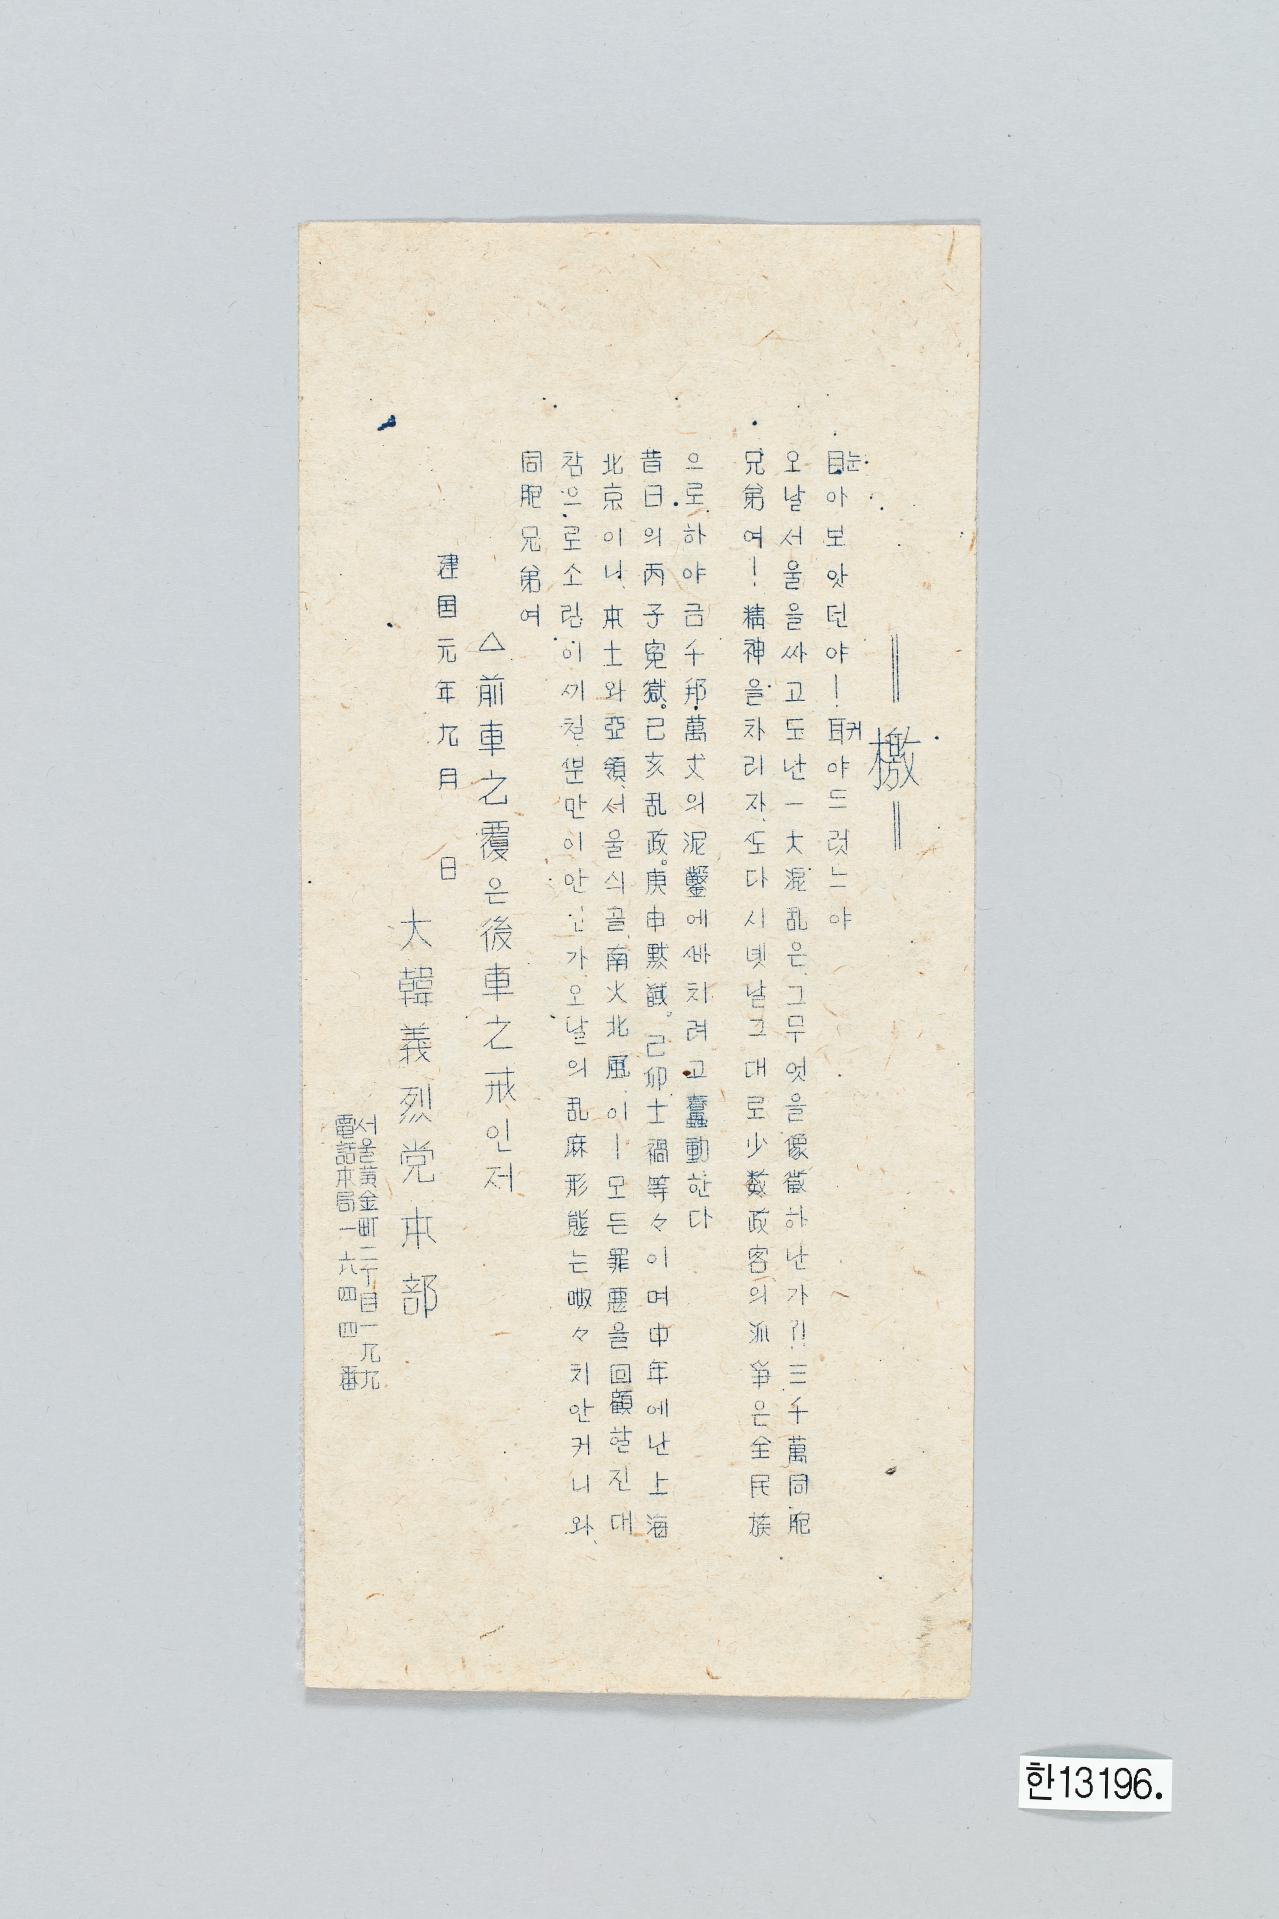 檄
目아보앗던야! 耳야드럿느야
눈
귀
오날서울을싸고도난一大混乱은그무엇을像徵하난가?! 三千萬同胞
兄弟여! 精神을차리자、또다시녯날그대로少数政客의派爭은全民族
으로하야금千邦萬丈의泥鑿에빠치려고蠢動한다
昔日의丙子冤獄。己亥乱政。庚申黙誠。己卯士禍等々이며中年에난上海
北京이니、本土와亞領、서울싀골、南火北風、이ㅣ모든罪惡을回顧할진대
참으로소림이끼칠뿐만이안인가오날의乱麻形態는啾々치안커니와、
同胞兄弟여
△前車之覆은後車之戒인저
建国元年九月 日
大韓義烈党本部
서울黃金町二丁目一九九
電話本局一六四四番
한13196.